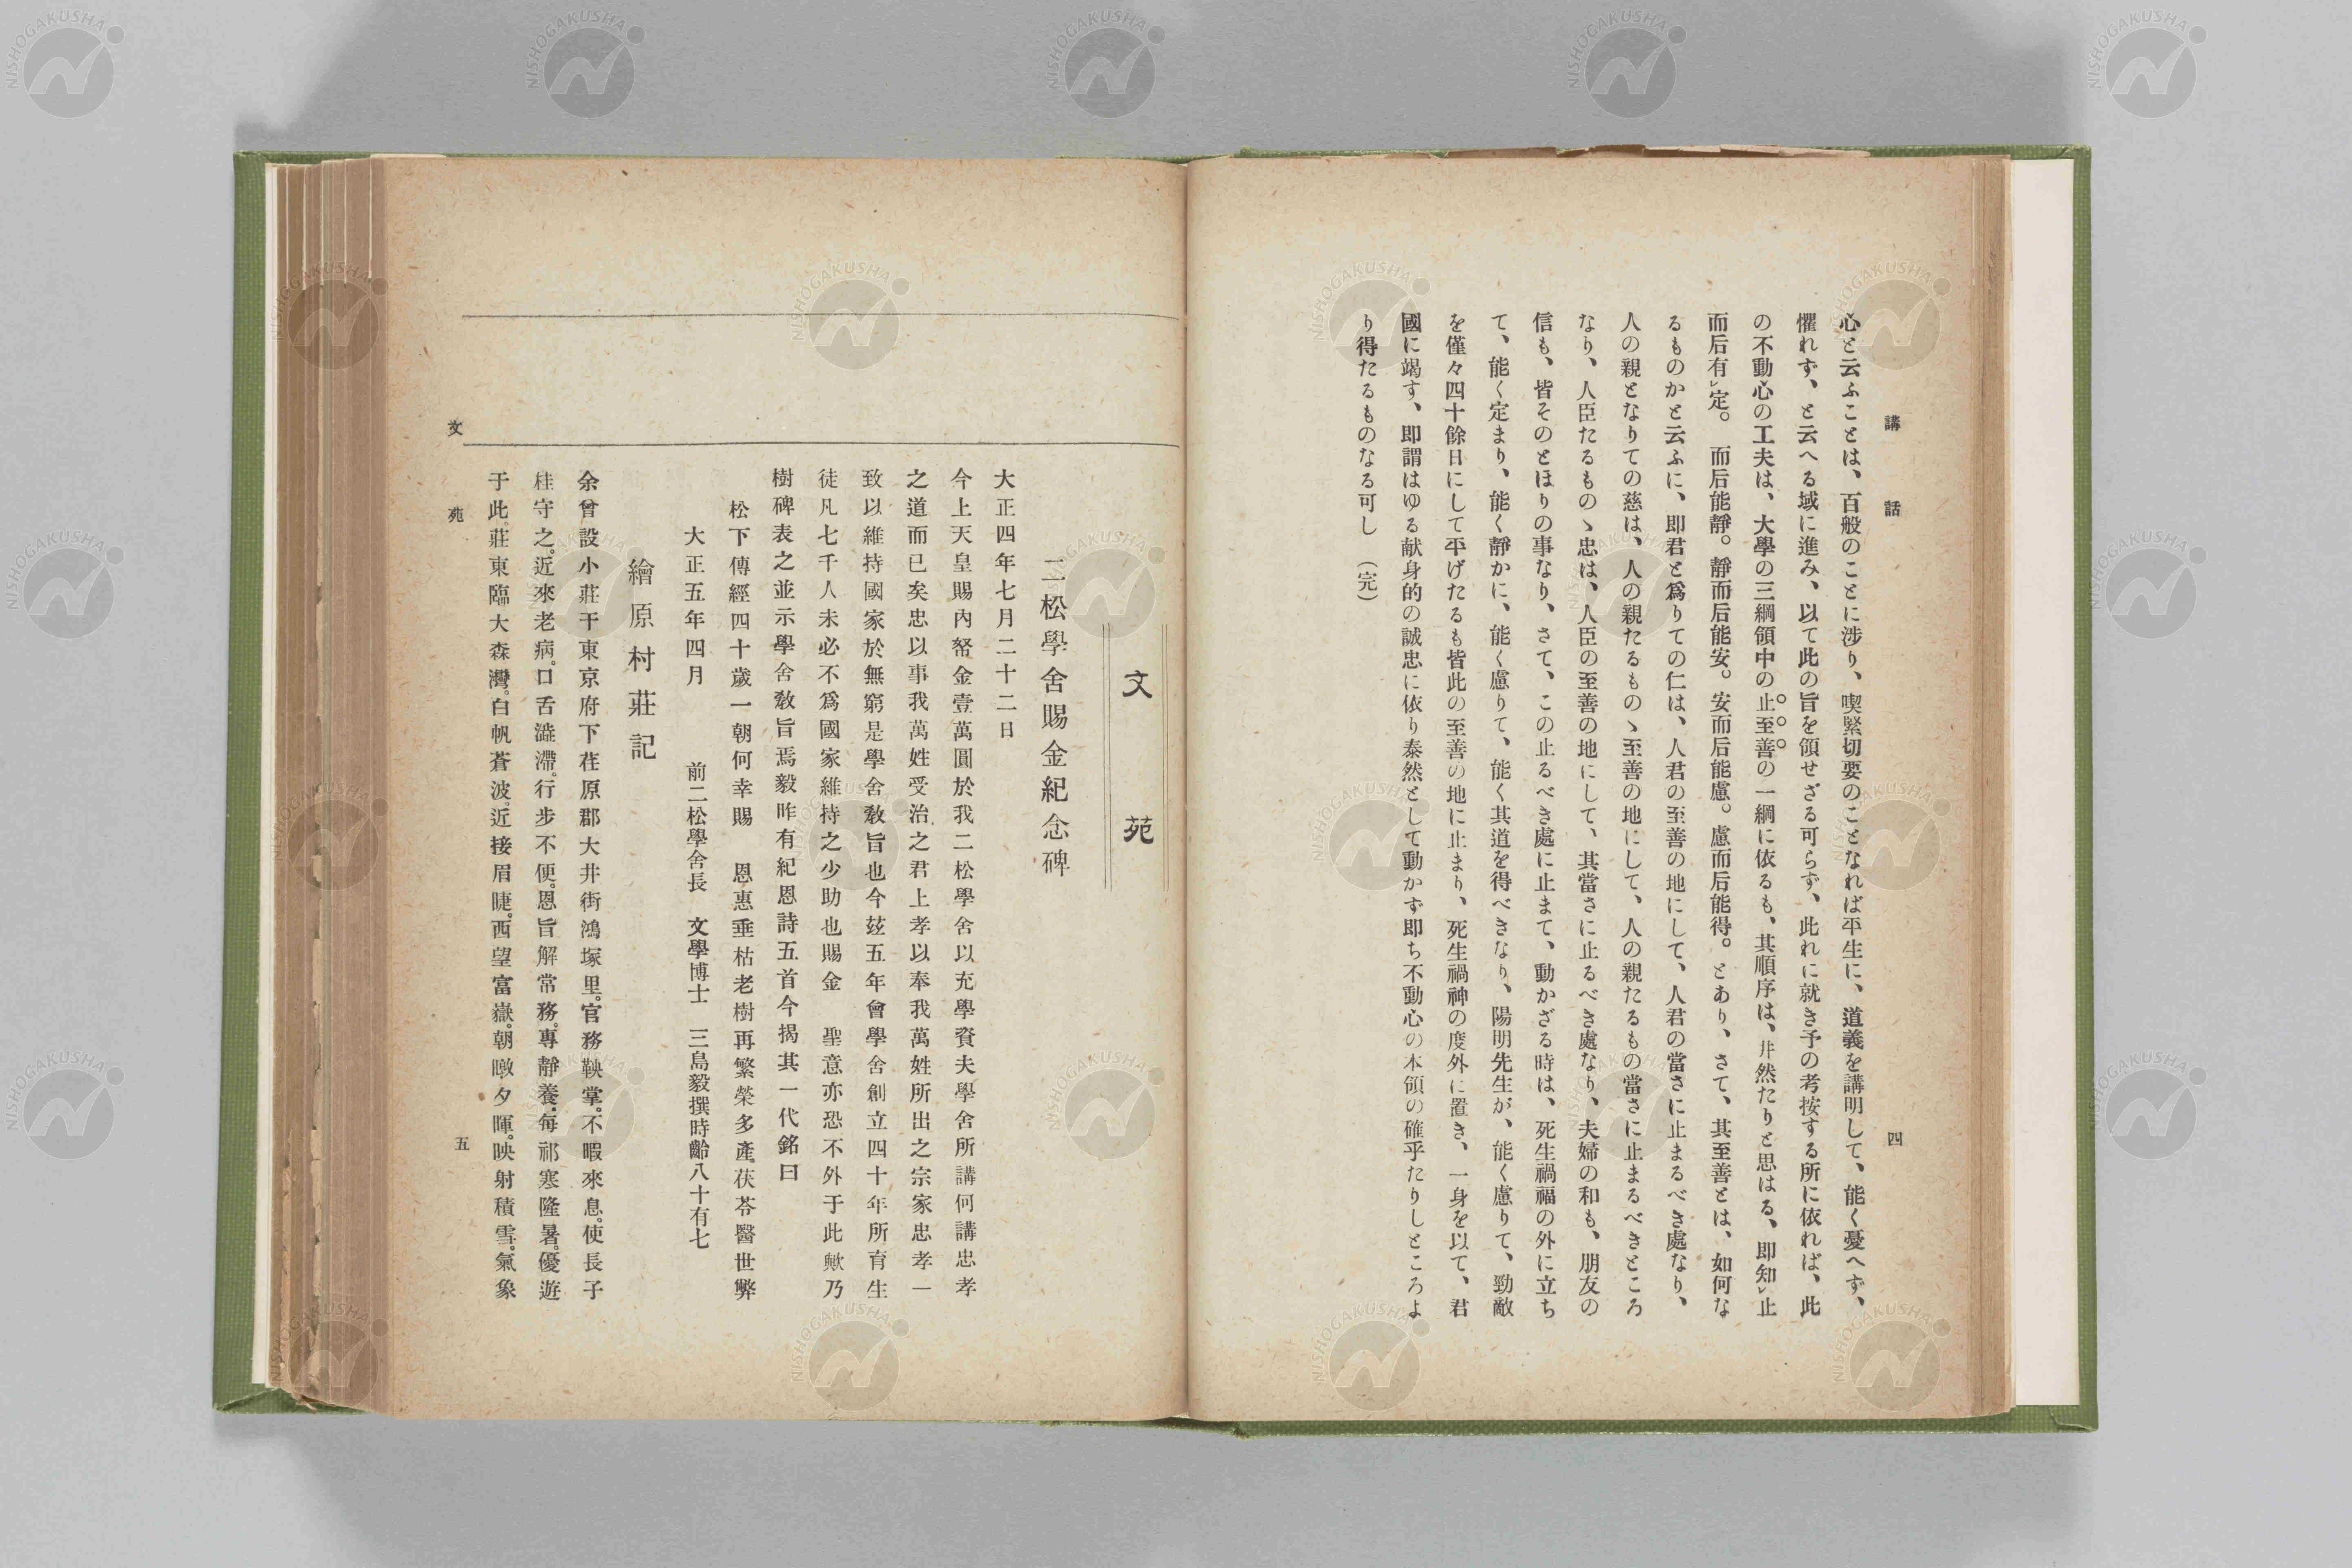 講話
四
心と云ふことは、百般のことに涉り、喫緊切要のことなれば平生に、道義を講明して、能く憂へず、
懼れず、と云へる域に進み、以て此の旨を領せざる可らず、此れに就き予の考按する所に依れば、此
の不動心の工夫は、大學の三綱領中の止至善の一綱に依るも、其順序は、井然たりと思はる、即知レ止
而后有レ定。而后能靜。靜而后能安。安而后能慮。慮而后能得。とあり、さて、其至善とは、如何な
るものかと云ふに、即君と爲りての仁は、人君の至善の地にして、人君の當さに止まるべき處なり、
人の親となりての慈は、人の親たるものゝ至善の地にして、人の親たるもの當さに止まるべきところ
なり、人臣たるものゝ忠は、人臣の至善の地にして、其當さに止るべき處なり、夫婦の和も、朋友の
信も、皆そのとほりの事なり、さて、この止るべき處に止まて、動かざる時は、死生禍福の外に立ち
て、能く定まり、能く靜かに、能く慮りて、能く其道を得べきなり、陽明先生が、能く慮りて、勁敵
を僅々四十餘日にして平げたるも皆此の至善の地に止まり、死生禍神の度外に置き、一身を以て、君
國に竭す、即謂はゆる献身的の誠忠に依り泰然として動かず即ち不動心の本領の確乎たりしところよ
り得たるものなる可し (完)
文苑
二松學舍賜金紀念碑
大正四年七月二十二日
今上天皇賜內帑金壹萬圓於我二松學舍以充學資夫學舍所講何講忠孝
之道而已矣忠以事我萬姓受治之君上孝以奉我萬姓所出之宗家忠孝一
致以維持國家於無窮是學舍敎旨也今玆五年會學舍創立四十年所育生
徒凡七千人未必不爲國家維持之少助也賜金 聖意亦恐不外于此歟乃
樹碑表之並示學舍敎旨焉毅昨有紀恩詩五首今揭其一代銘曰
松下傳經四十歲一朝何幸賜 恩惠垂枯老樹再繁榮多產茯苓醫世弊
大正五年四月 前二松學舍長 文學博士 三島毅撰時齡八十有七
繪原村莊記
余曾設小莊于東京府下荏原郡大井街鴻塚里。官務鞅掌。不暇來息。使長子
桂守之。近來老病。口舌澁滯。行步不便。恩旨解常務。專靜養。每祁寒隆暑。優遊
于此。莊東臨大森灣。白帆蒼波。近接眉睫。西望富嶽。朝暾夕暉。映射積雪。氣象
文苑
五
NISHOGAKUSHA